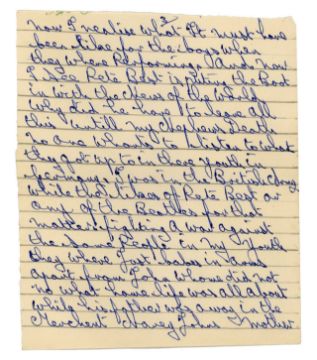 3
now I realise what it must have
been like for the boys when
they where Performing. And now
I see Pete Best is Puting the Boot
in with the chears of the World
why did he have to leave all
this untill my Stephews Death
no one whants to listen to what
they got up to in there youth in
I was in the British Army
while the likes of Pete Best or
any of the Beatles for that
matter. fighting a war against
the Same People in my youth
they where Just babes in arms
apart from John who did not
no what home life was all about
which his father was away in the
Merchent Navey Johns Mother